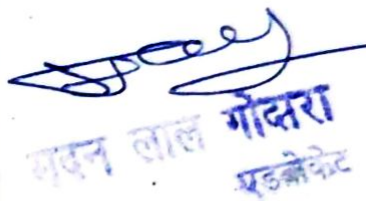 मदन लाल गोदारा
एडवोकेट